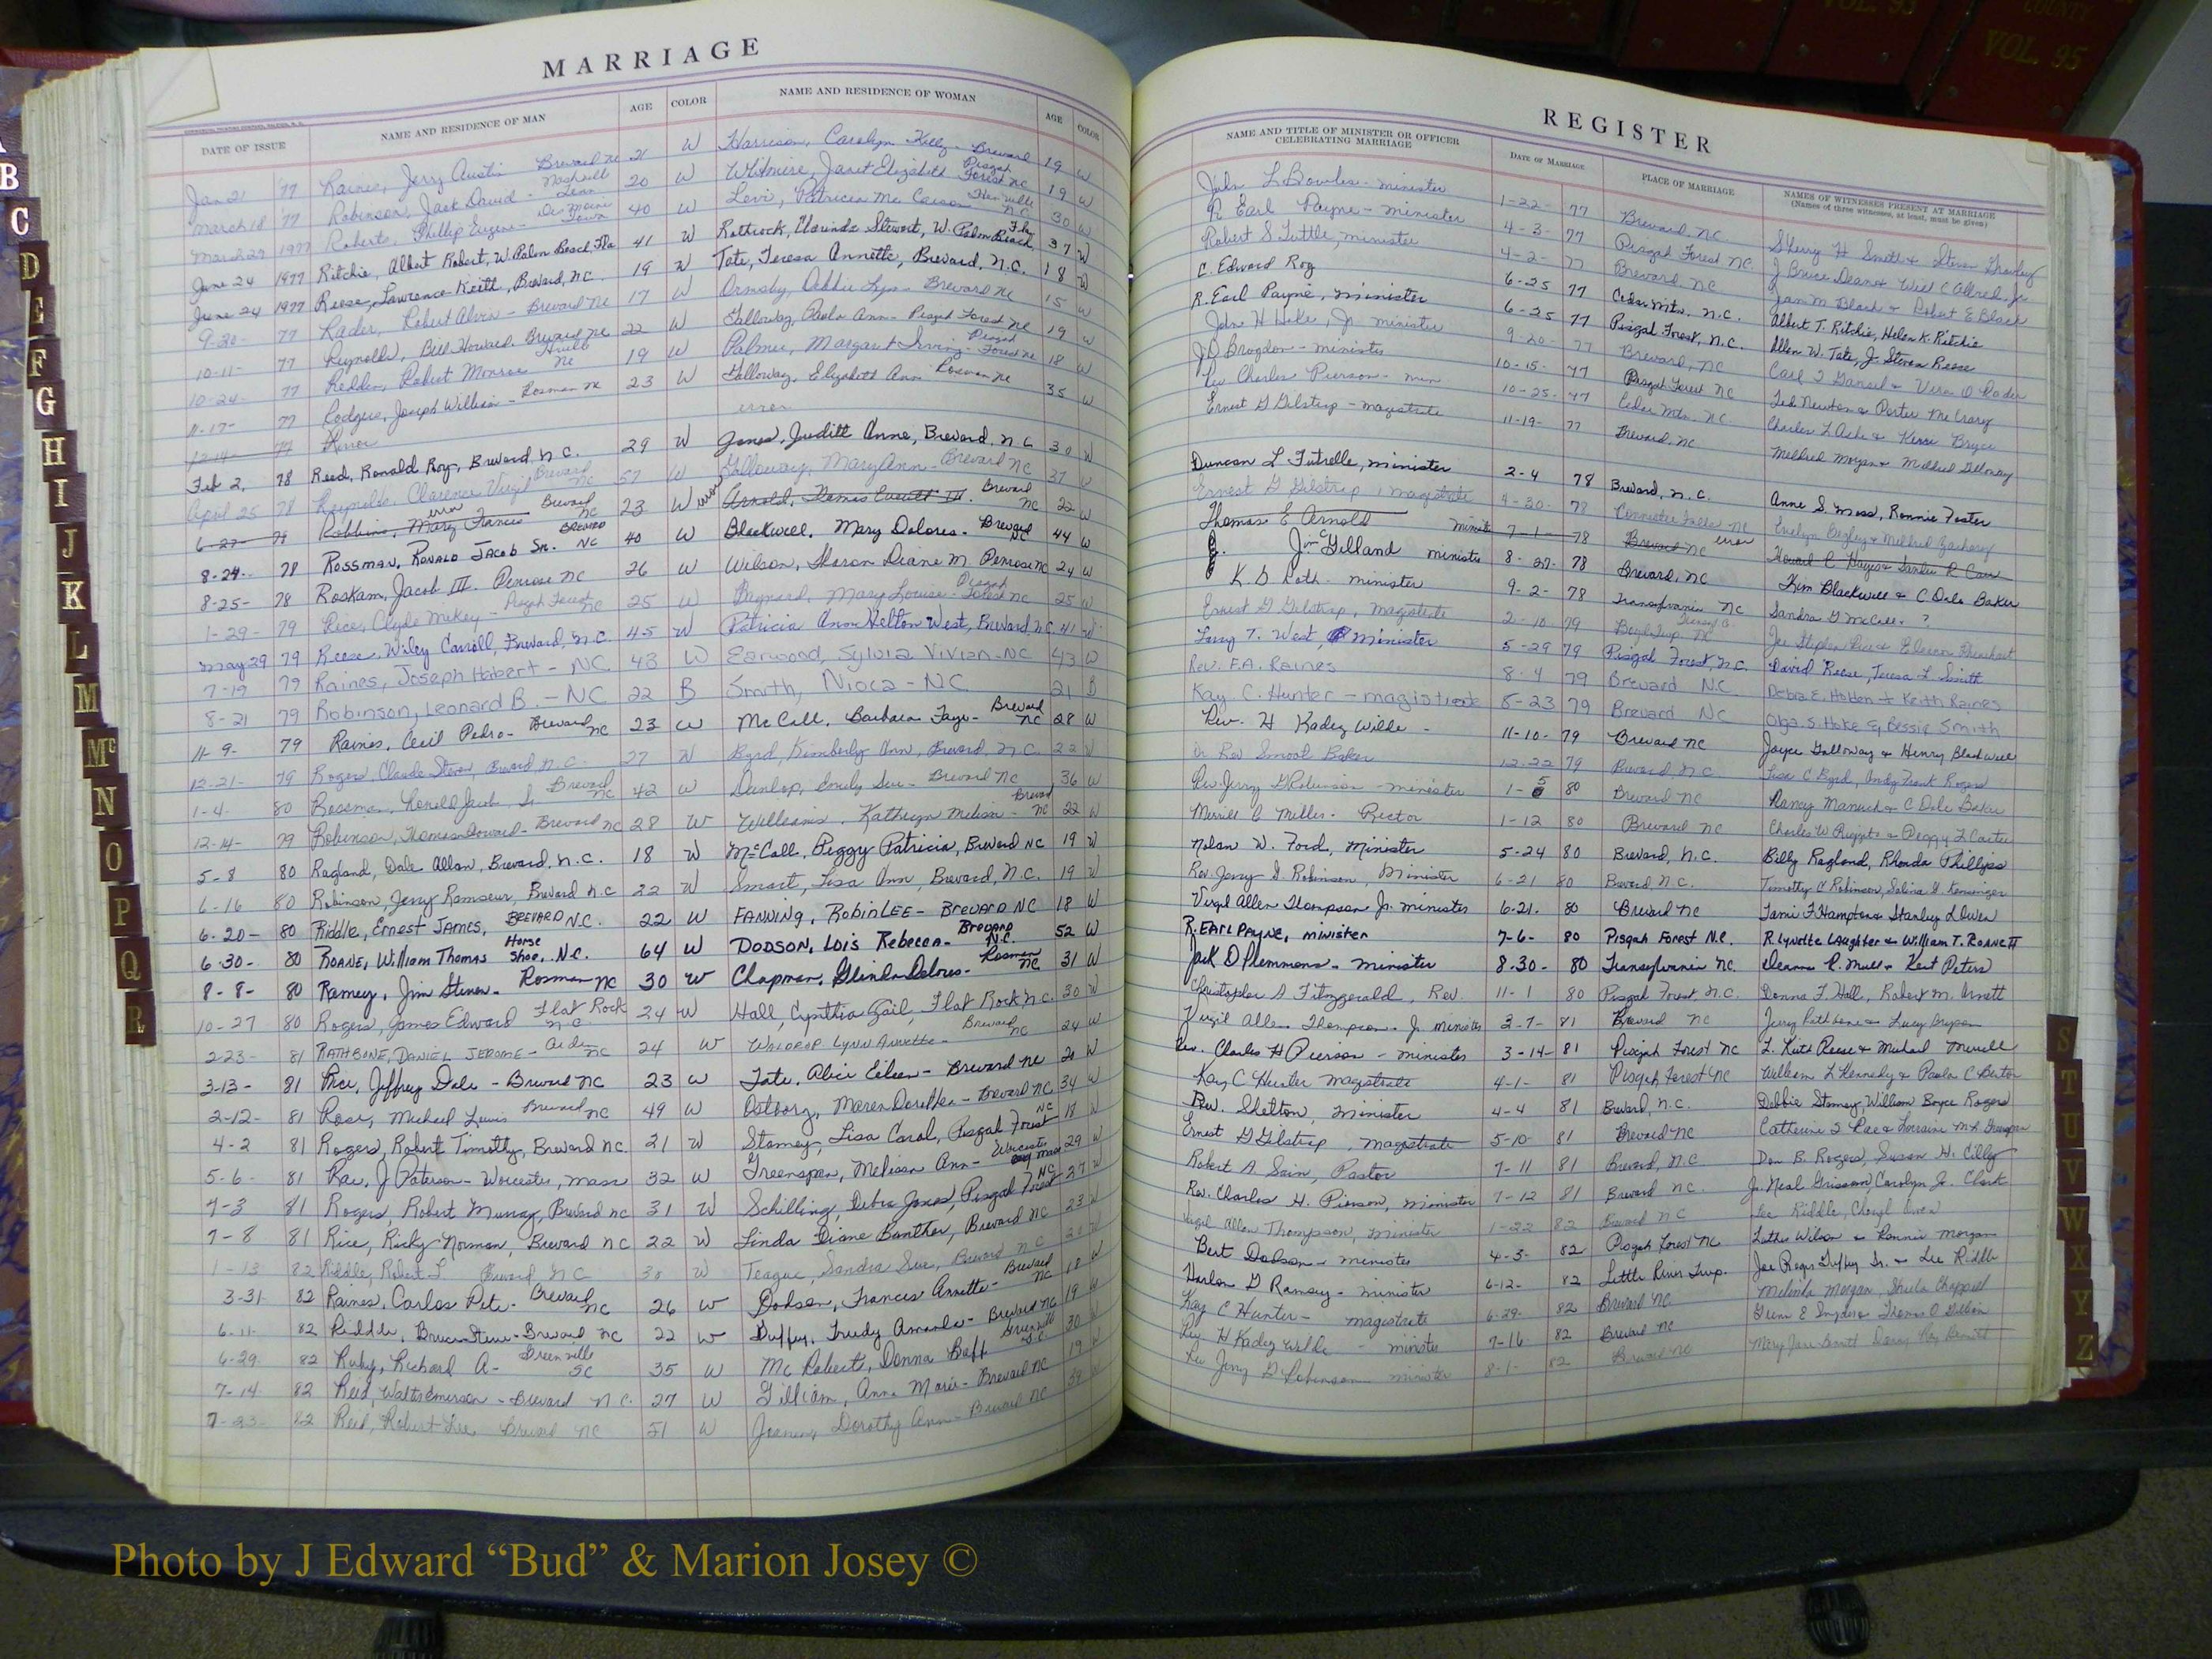 MARRIAGE
DATE OF ISSUE NAME AND RESIDENCE OF MAN AGE COLOR NAME AND RESIDENCE OF WOMAN AGE COLOR
Jan 21 77 Raines, Jerry Austin Brevard NC 21 W Harrison, Carolyn Kelly - Brevard 19 W
March 18 77 Robinson, Jack David - Nashville Tenn 20 W Whitmire, Janet Elizabeth Pisgah Forest NC 19 W
March 29 1977 Roberts, Phillip Eugene - Des Moine Iowa 40 W Levi, Patricia Mc 30 W
June 24 1977 Ritchie, Albert Robert, W. Palm Beach, Fla 41 W Rothrock, Clarinda Stewart, W. Palm Beach, Fla 37 W
June 24 1977 Reese, Lawrence Keith, Brevard, N.C. 19 W Tate, Teresa Annette, Brevard, N.C. 18 W
9-20- 77 Rader, Robert Alvin - Brevard NC 17 W Ormsby, Debbie Lynn Brevard NC 15 W
10-11- 77 Reynolds, Bill Howard Brevard NC 22 W Galloway, Paula Ann - Pisgah Forest NC 19 W
10-24- 77 Redden, Robert Monroe NC 19 W Palmer, Margaret Irving - Pisgah Forest NC 18 W
11-17- 77 Rodgers, Joseph William - Rosman NC 23 W Galloway, Elizabeth Ann Rosman NC 35 W
12-14- 77 Error error
Feb 2, 78 Reed, Ronald Roy, Brevard, N.C. 29 W Jones, Judith Anne, Brevard, N.C. 30 W
April 25 78 Reynolds, Clarence Virgil Brevard NC 57 W Galloway, Mary Ann - Brevard NC 37 W
6-27- 78 Robbins, Mary Francis error Brevard NC 23 W error Arnold, Thomas Everett III. Brevard NC 22 W
8-24- 78 ROSSMAN, RONALD JACOB SR. BREVARD NC 40 W Blackwell, Mary Dolores - Brevard NC 44 W
8-25- 78 Roskam, Jacob III. Penrose NC 26 W Wilson, Sharon Diane M. Penrose NC 24 W
1-29- 79 Rice, Clyde Mickey - Pisgah Forest NC 25 W Maynard, Mary Louise - Pisgah Forest NC 25 W
May 29 79 Reese, Wiley Carroll, Brevard, N.C. 45 W Patricia Ann Helton West, Brevard, N.C. 41 W
7-19 79 Raines, Joseph Hobert - NC 43 W Earwood, Sylvia Vivian - NC 43 W
8-21 79 Robinson, Leonard B. - NC 22 B Smith, Nioca - NC 21 B
11-9- 79 Raines, Cecil Pedro - Brevard NC 23 W McCall, Barbara Faye - Brevard NC 28 W
12-21- 79 Rogers, Claude Steven, Brevard, N.C. 27 W Byrd, Kimberly Ann, Brevard, N.C. 22 W
1-4- 80 Rossman, Ronald Jacob Sr Brevard NC 42 W Dunlap, Emily Sue - Brevard NC 36 W
12-14- 79 Robinson, Thomas Howard - Brevard NC 28 W Williams, Kathryn Melissa - Brevard NC 22 W
5-8 80 Ragland, Dale Allan, Brevard, N.C. 18 W McCall, Peggy Patricia, Brevard NC 19 W
6-16 80 Robinson, Jerry Ramseur, Brevard N.C 22 W Smart, Lisa Ann, Brevard, N.C. 19 W
6-20- 80 Riddle, Ernest JAMES, BREVARD N.C. 22 W FANNING, Robin LEE - BREVARD NC 18 W
6-30- 80 ROANE, William Thomas Horse Shoe, N.C. 64 W DODSON, Lois Rebecca - BREVARD N.C. 52 W
8-8- 80 Ramey, Jim Steven - Rosman NC 30 W Chapman, Glinda Delores - Rosman NC 31 W
10-27 80 Rogers, James Edward Flat Rock N.C. 24 W Hall, Cynthia Gail, Flat Rock N.C. 30 W
2-23- 81 RATHBONE, DANIEL JEROME - Arden NC 24 W WALDROP LYNN Annette - Brevard NC 24 W
3-13- 81 Rice, Jeffrey Dale - Brevard NC 23 W Tate, Alice Eileen - Brevard NC 20 W
2-12- 81 Rose, Michael Lewis Brevard NC 49 W Ostborg, Maren Dorethea - Brevard NC 34 W
4-2 81 Rogers, Robert Timothy, Brevard NC. 21 W Stamey, Lisa Carol, Pisgah Forest NC 18 W
5-6- 81 Rae, J Paterson - Worcester, Mass 32 W Greenspan, Melissa Ann - Worcester Mass 29 W
7-3 81 Rogers, Robert Murray, Brevard NC 31 W Schilling, Debra Jones, Pisgah Forest NC 27 W
7-8 81 Rice, Ricky Norman, Brevard NC 22 W Linda Diane Banther, Brevard NC 23 W
1-13 82 Riddle, Robert L Brevard NC 30 W Teague, Sandra Sue, Brevard NC W
3-31 82 Raines, Carlos Pete - Brevard NC 26 W Dodson, Frances Annette - Brevard NC 18 W
6-11- 82 Riddle, Bruce Steve - Brevard NC 22 W Duffey, Trudy Amanda - Brevard NC 19 W
6-29- 82 Ruby, Richard A - Greenville SC 35 W McRoberts, Donna Goff Greenville SC 30 W
7-14- 82 Reid, Walter Emerson - Brevard N.C. 27 W Gilliam, Ann Marie - Brevard NC 19 W
7-23- 82 Reid, Robert Lee Brevard NC 51 W Dorothy Ann - Brevard NC W
REGISTER
NAME AND TITLE OF MINISTER OR OFFICER CELEBRATING MARRIAGE DATE OF MARRIAGE PLACE OF MARRIAGE NAMES OF WITNESSES PRESENT AT MARRIAGE
(Names of three witnesses, at least, must be given)
John L Bowles - minister 1-22- 77 Brevard NC. Sherry H Smith & Steven
R Earl Payne - minister 4-3- 77 Pisgah Forest NC. J Bruce Dean & Will C Allred, Jr
Robert S Tuttle, minister 4-2- 77 Brevard NC Jan M Black & Robert E Black
C. Edward Roy 6-25 77 Cedar Mtn. N.C. Albert T. Ritchie, Helen K. Ritchie
R. Earl Payne, minister 6-25 77 Pisgah Forest, N.C. Allen W. Tate, J. Steven Reese
John H Hoke, Jr minister 9-20- 77 Brevard, NC Carl & Vera O Rader
J D Brogdon - minister 10-15- 77 Pisgah Forest NC Ted Newton & Porter McCrary
Rev Charles Pierson - min 10-25- 77 Cedar Mtn. NC. Charles L Ashe & Bryce
Ernest G Gilstrap - magistrate 11-19- 77 Brevard, NC Mildred Morgan & Mildred Galloway
Duncan L Futrelle, minister 2-4 78 Brevard, N.C. Anne S. Moss, Ronnie Foster
Ernest G Gilstrap, magistrate 4-30- 78 Connestee Falls NC Evelyn & Mildred Zachary
Thomas E Arnold minister 7-1- 78 Brevard NC error Howard C Hayes & R Carr
G. Jim McGilland minister 8-27- 78 Brevard, NC Kim Blackwell & C. Dale Baker
K. D Roth - minister 9-2- 78 Transylvania NC Sandra G McCall - ?
Ernest G Gilstrap, magistrate 2-10 79 Boyd Twp NC Joe Stephen Rice & Eleanor Rhinehart
Terry T. West, Minister 5-29 79 Pisgah Forest, N.C. David Reese, Teresa L. Smith
Rev. F.A. Raines 8-4 79 Brevard N.C. Debra E. Holton & Keith Raines
Kay C. Hunter - magistrate 8-23 79 Brevard NC Olga S. Hoke & Bessie Smith
Rev. H Kadez Wilde - 11-10- 79 Brevard NC Joyce Galloway & Henry Blackwell
Dr Rev Smoot Baker 12-22 79 Brevard, N.C. Lisa C Byrd, Andy Frank Rogers
Rev. Jerry G Robinson - minister 1-5 80 Brevard NC Nancy & C Dale Baker
Merrill C Miller - Rector 1-12 80 Brevard NC Charles W & Peggy L Carter
Nolan W. Ford, Minister 5-24 80 Brevard, N.C. Billy Ragland, Rhonda Phillips
Rev. Jerry G. Robinson, Minister 6-21 80 Brevard N.C. Timothy C Robinson, Salina
Virgil Allen Thompson Jr. minister 6-21. 80 Brevard NC Tami F Hampton & Stanley L Owen
R. EARL PAYNE, minister 7-6- 80 Pisgah Forest N.C. R. Lynette LAughter & William T. ROANE II
Jack D Plemmons - minister 8-30- 80 Transylvania NC. Deanna R. Mull & Kent Peters
Christopher A Fitzgerald, Rev. 11-1 80 Pisgah Forest N.C. Donna F Hall, Robert M. Arnett
Virgil Allen Thompson Jr minister 3-7- 81 Brevard NC Jerry Rathbone & Lucy Bryson
Rev. Charles H Pierson - minister 3-14- 81 Pisgah Forest NC L. Keith Reese & Michael Merrell
Kay C Hunter magistrate 4-1- 81 Pisgah Forest NC William L Kennedy & Paula C Barton
Rev. Shelton, Minister 4-4 81 Brevard, N.C. Debbie Stamey, William Boyce Rogers
Ernest G Gilstrap, magistrate 5-10- 81 Brevard NC Catherine S Rae & Lorraine
Robert A Sain, Pastor 7-11 81 Brevard, N.C Don B. Rogers, Susan H.
Rev. Charles H. Pierson, minister 7-12 81 Brevard NC. J. Neal Grissom, Carolyn J. Clark
Virgil Allen Thompson, minister 1-22 82 Brevard NC Lee Riddle, Cheryl Owen
Bert Dodson - minister 4-3- 82 Pisgah Forest NC Luther Wilson & Ronnie Morgan
Harlon G Ramsey - minister 6-12- 82 Little River Twp. Joe Roger Duffey Sr. & Lee Riddle
Kay C Hunter - magistrate 6-29- 82 Brevard NC Melinda Morgan, Sheila Chappell
Rev H Kadez Wilde - minister 7-16- 82 Brevard NC
Rev Jerry G Robinson minister 8-1- 82 Brevard NC Mary Jane
B
C
D
E
F
G
H
I
J
K
L
M
Mc
N
O
P
Q
R
S
T
U
V
W
X
Y
Z
VOL. 93
COUNTY.
VOL. 95
Photo by J Edward “Bud” & Marion Josey ©